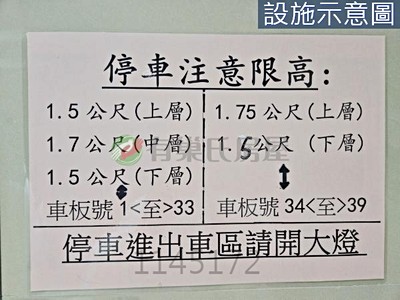 設施示意圖
停車注意限高:
1.5公尺(上層)
1.7公尺(中層)
1.5公尺(下層)
車板號1<至>33
1.75公尺(上層)
1.5公尺 (下層)
車板號34<至>39
有巢氏房屋
停車進出車區請開大燈
1145172